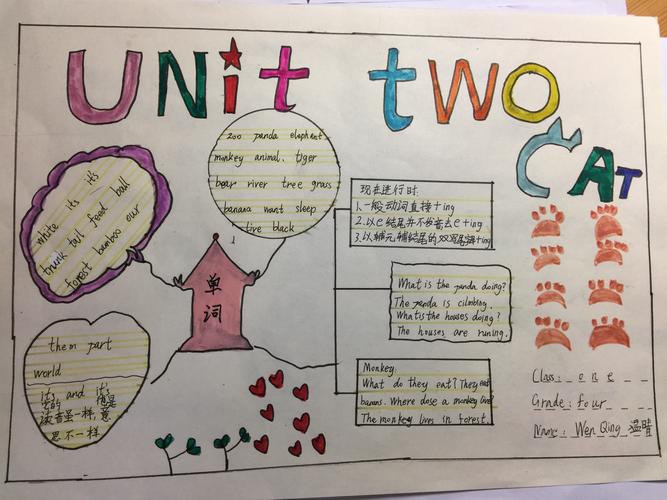 UNit two
CAT
zoo panda elephant
monkey animal. tiger
bear river tree grass
banana want sleep
live black
white its it's
thunk tail feed ball
forest bamboo our
单词
them part
world
it's and it's
它的 他是
读音虽一样,意
思不一样
现在进行时.
1.一般动词直接+ing
2.以e结尾并不发音去e+ing
3.以辅元辅结尾的双写尾辅+ing
What is the panda doing?
The panda is cilmbing.
What is the houses doing?
The houses are runing.
Monkey:
What do they eat? They eat
banans. Where dose a monkey live?
The monkey lives in forest.
Class: one
Grade: four
Name: Wen Qing 温晴